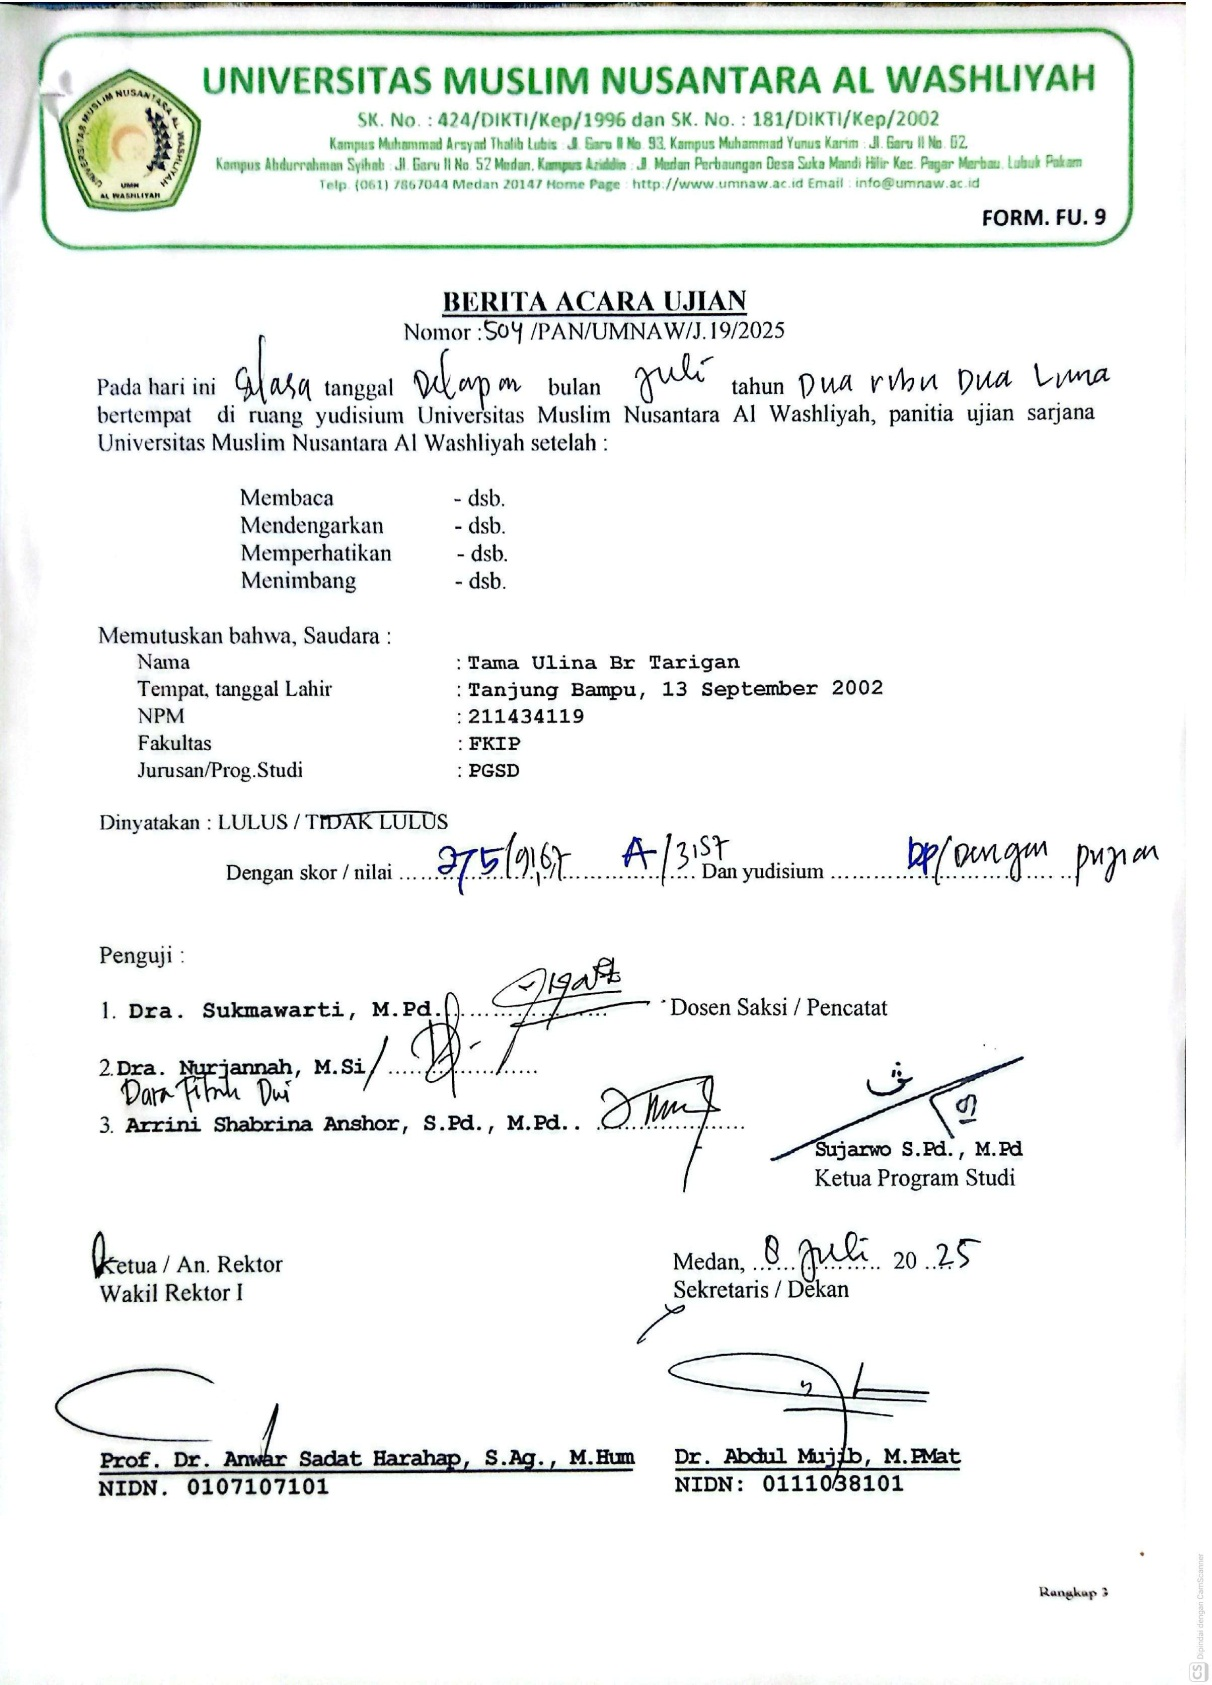 UNIVERSITAS MUSLIM NUSANTARA AL WASHLIYAH
SK. No. : 424/DIKTI/Kep/1996 dan SK. No. : 181/DIKTI/Kep/2002
Kampus Muhammad Arsyad Thalib Lubis : Jl. Garu II No. 93, Kampus Muhammad Yunus Karim : Jl. Garu II No. 02,
Kampus Abdurrahman Syihab : Jl. Garu II No. 52 Medan, Kampus Aziddin : Jl. Medan Perbaungan Desa Suka Mandi Hilir Kec. Pagar Merbau, Lubuk Pakam
Telp. (061) 7867044 Medan 20147 Home Page : http://www.umnaw.ac.id Email : info@umnaw.ac.id
UNIVERSITAS MUSLIM NUSANTARA AL WASHLIYAH
UMN
AL WASHLIYAH
FORM. FU. 9
BERITA ACARA UJIAN
Nomor : 504 /PAN/UMNAW/J.19/2025
Pada hari ini Selasa tanggal Delapan bulan Juli tahun Dua ribu Dua Lima
bertempat di ruang yudisium Universitas Muslim Nusantara Al Washliyah, panitia ujian sarjana
Universitas Muslim Nusantara Al Washliyah setelah :
Membaca - dsb.
Mendengarkan - dsb.
Memperhatikan - dsb.
Menimbang - dsb.
Memutuskan bahwa, Saudara :
Nama : Tama Ulina Br Tarigan
Tempat, tanggal Lahir : Tanjung Bampu, 13 September 2002
NPM : 211434119
Fakultas : FKIP
Jurusan/Prog.Studi : PGSD
Dinyatakan : LULUS / TIDAK LULUS
Dengan skor / nilai ... 275/91,67 A/3,57 ... Dan yudisium ... DP/Dengan pujian
Penguji :
1. Dra. Sukmawarti, M.Pd. ... Dosen Saksi / Pencatat
2. Dra. Nurjannah, M.Si/ ...
Dara Fitrah Dwi
3. Arrini Shabrina Anshor, S.Pd., M.Pd.. ...
Sujarwo S.Pd., M.Pd
Ketua Program Studi
Ketua / An. Rektor
Wakil Rektor I
Medan, 8 Juli 20 25
Sekretaris / Dekan
Prof. Dr. Anwar Sadat Harahap, S.Ag., M.Hum
NIDN. 0107107101
Dr. Abdul Mujib, M.PMat
NIDN: 0111038101
Rangkap 3
CS Dipindai dengan CamScanner